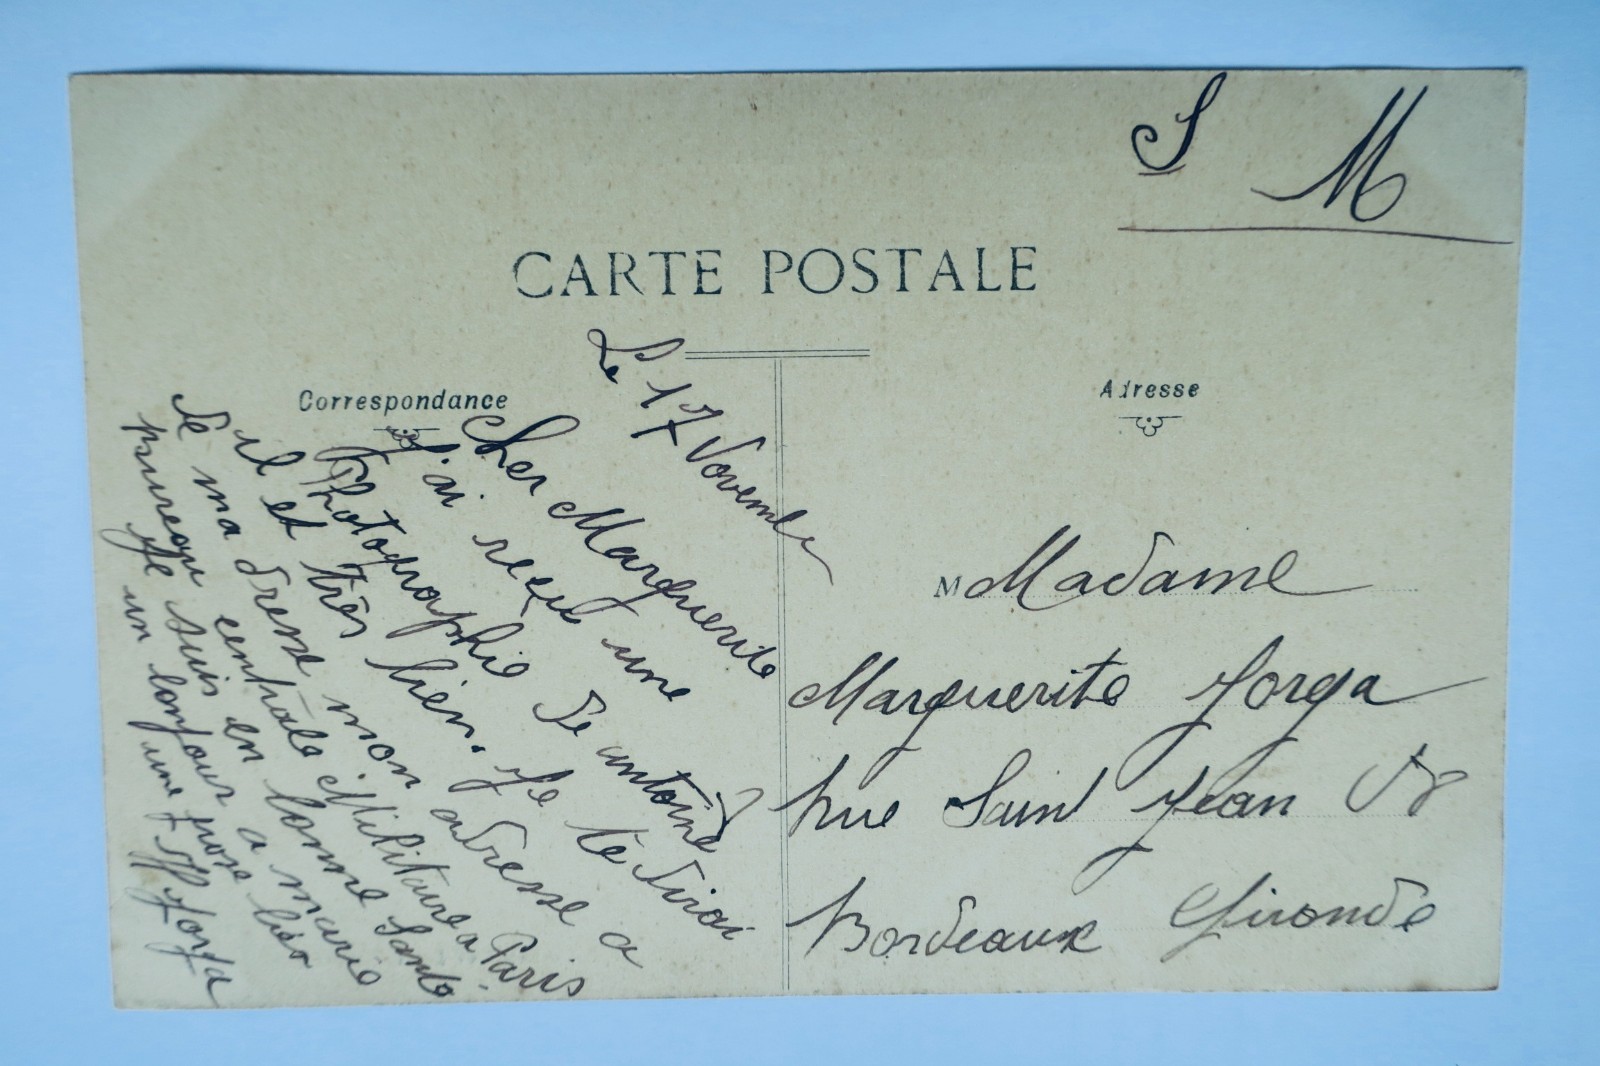 S M
CARTE POSTALE
Correspondance
Adresse
Le 17 Novembre
Cher Marguerite
J'ai reçu une
Photographie de antoine
il et très bien. Je te dirai
de ma dresse mon adresse a
centrale Militaire a Paris
Je suis en bonne Santé
un bonjour a marie
une
Jorga
M Madame
Marguerite Jorga
Rue Saint Jean
Bordeaux Gironde